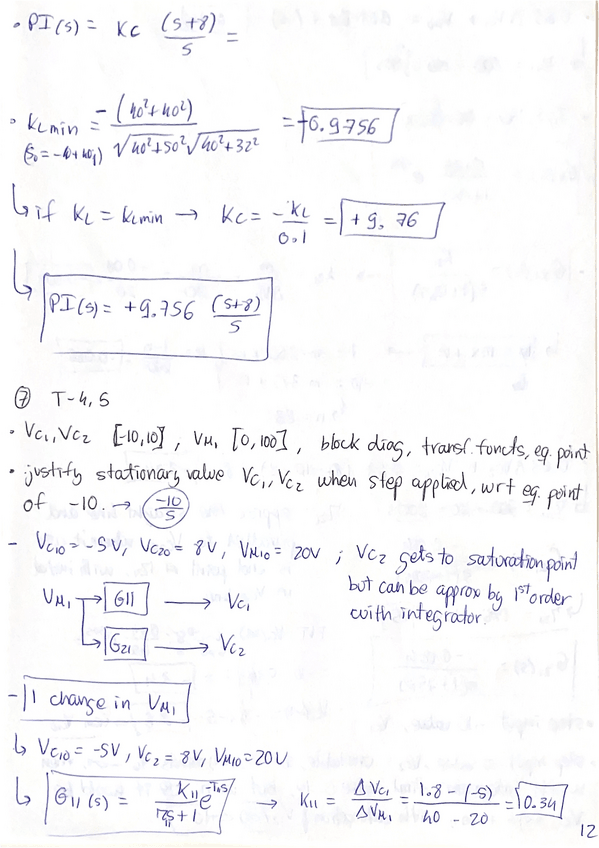 • PI(s) = Kc (s+8)/s =
• KLmin = -(40²+40²) / √40²+50² √40²+32² = +0.9756
(s0 = -40+40j)
↳ if KL = KLmin → Kc = -KL/0.1 = +9,76
↳ PI(s) = +9.756 (s+8)/s
⑦ T-4,5
• Vc1, Vc2 [-10,10], VM1 [0,100], block diag, transf. functs, eq. point
• justify stationary value Vc1, Vc2 when step applied, wrt eq. point
of -10. → -10/s
- Vc10 = -5V, Vc20 = 8V, VM10 = 20V ; Vc2 gets to saturation point
but can be approx by 1st order
with integrator.
VM1 → G11 → Vc1
→ G21 → Vc2
- 1 change in VM1
↳ Vc10 = -5V, Vc2 = 8V, VM10 = 20V
↳ G11(s) = K11 e^T11s / τ11s + 1 → K11 = ΔVc1/ΔVM1 = 1.8-(-5)/40-20 = 0.34
12